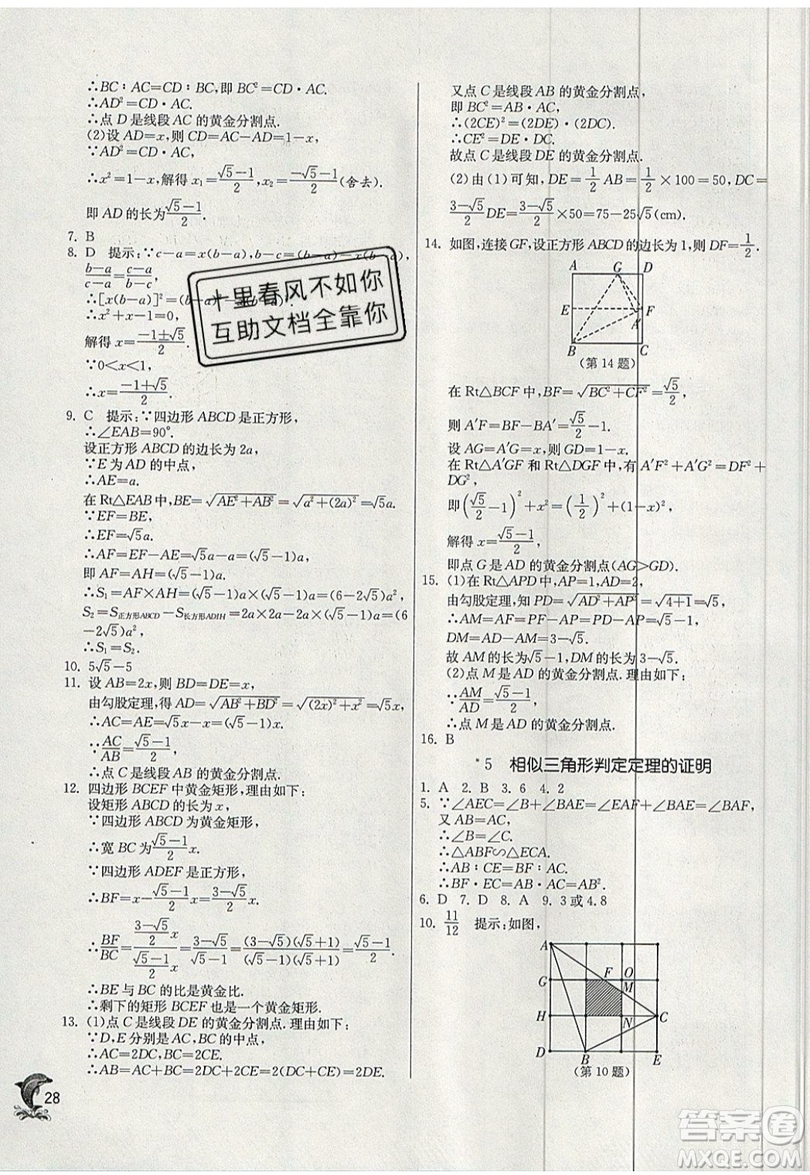 ∴BC∶AC=CD∶BC,即 BC²=CD·AC.
∴AD²=CD·AC.
∴点 D 是线段 AC 的黄金分割点.
(2)设 AD=x,则 CD=AC-AD=1-x,
∵AD²=CD·AC,
∴x²=1-x,解得 x₁=(√5-1)/2,x₂=(-√5-1)/2(舍去).
即 AD 的长为(√5-1)/2.
7. B
8. D 提示:∵c-a=x(b-a),b-c=x(c-a),
(b-a)/(c-a)=(c-a)/(b-c),
∴[x(b-a)]²=
∴x²+x-1=0,
解得 x=(-1±√5)/2.
∵0<x<1,
∴x=(-1+√5)/2.
9. C 提示:∵四边形 ABCD 是正方形,
∴∠EAB=90°.
设正方形 ABCD 的边长为 2a,
∵E 为 AD 的中点,
∴AE=a.
在 Rt△EAB 中,BE=√(AE²+AB²)=√(a²+(2a)²)=√5a.
∵EF=BE,
∴EF=√5a.
∴AF=EF-AE=√5a-a=(√5-1)a,
即 AF=AH=(√5-1)a.
∴S₁=AF×AH=(√5-1)a×(√5-1)a=(6-2√5)a²,
S₂=S正方形ABCD-S长方形ADIH=2a×2a-2a×(√5-1)a=(6
-2√5)a²,
∴S₁=S₂.
10. 5√5-5
11. 设 AB=2x,则 BD=DE=x,
由勾股定理,得 AD=√(AB²+BD²)=√((2x)²+x²)=√5x,
∴AC=AE=√5x-x=(√5-1)x.
∵AC/AB=(√5-1)/2,
∴点 C 是线段 AB 的黄金分割点.
12. 四边形 BCEF 中黄金矩形.理由如下:
设矩形 ABCD 的长为 x,
∵四边形 ABCD 为黄金矩形,
∴宽 BC 为(√5-1)/2 x.
∵四边形 ADEF 是正方形,
∴BF=x-(√5-1)/2 x=(3-√5)/2 x,
∴BF/BC=((3-√5)/2 x)/((√5-1)/2 x)=(3-√5)/(√5-1)=(3-√5)(√5+1)/(√5-1)(√5+1)=(√5-1)/2.
∴BE 与 BC 的比是黄金比.
∴剩下的矩形 BCEF 也是一个黄金矩形.
13. (1)点 C 是线段 DE 的黄金分割点.理由如下:
∵D,E 分别是 AC,BC 的中点,
∴AC=2DC,BC=2CE.
∴AB=AC+BC=2DC+2CE=2DE.
28
又点 C 是线段 AB 的黄金分割点,
即 BC²=AB·AC,
∴(2CE)²=(2DE)·(2DC).
∴CE²=DE·DC.
故点 C 是线段 DE 的黄金分割点.
(2)由(1)可知,DE=1/2 AB=1/2×100=50,DC=
(3-√5)/2 DE=(3-√5)/2×50=75-25√5(cm).
14. 如图,连接 GF,设正方形 ABCD 的边长为 1,则 DF=1/2.
A G D
E F
A′
B C
(第 14 题)
在 Rt△BCF 中,BF=√(BC²+CF²)=√5/2,
则 A′F=BF-BA′=√5/2-1.
设 AG=A′G=x,则 GD=1-x.
在 Rt△A′GF 和 Rt△DGF 中,有 A′F²+A′G²=DF²+
DG²,
即(√5/2-1)²+x²=(1/2)²+(1-x)²,
解得 x=(√5-1)/2.
即点 G 是 AD 的黄金分割点(AG>GD).
15. (1)在 Rt△APD 中,AP=1,AD=2,
由勾股定理,知 PD=√(AD²+AP²)=√(4+1)=√5,
∴AM=AF=PF-AP=PD-AP=√5-1,
DM=AD-AM=3-√5.
故 AM 的长为√5-1,DM 的长为 3-√5.
(2)点 M 是 AD 的黄金分割点.理由如下:
∵AM/AD=(√5-1)/2,
∴点 M 是 AD 的黄金分割点.
16. B
*5 相似三角形判定定理的证明
1. A 2. B 3. 6 4. 2
5. ∵∠AEC=∠B+∠BAE=∠EAF+∠BAE=∠BAF,
又 AB=AC,
∴∠B=∠C.
∴△ABF∽△ECA.
∴AB∶CE=BF∶AC.
∴BF·EC=AB·AC=AB².
6. D 7. D 8. A 9. 3 或 4.8
10. 11/12 提示:如图,
A
G F O
M
H N C
D B E
(第 10 题)
十里春风不如你
互助文档全靠你
答案圈
MXQE.COM